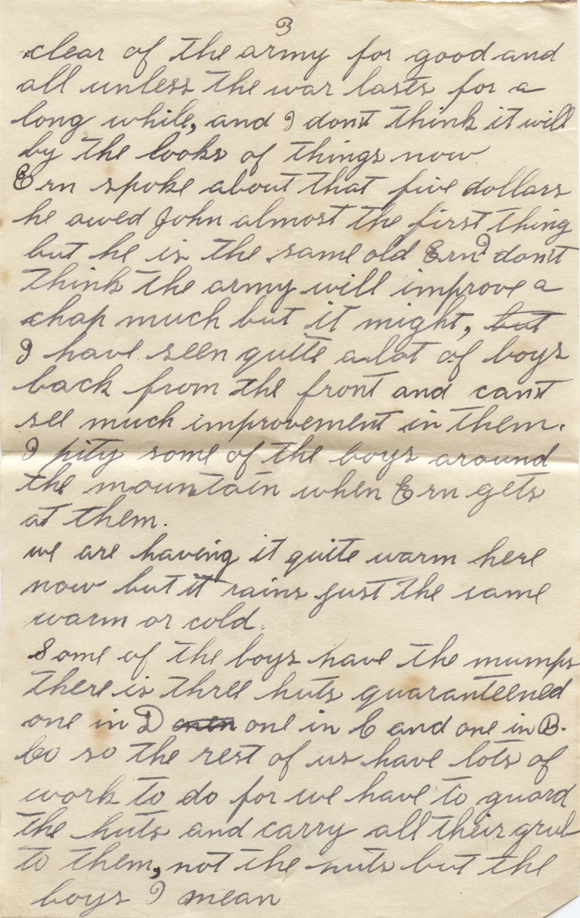 3
clear of the army for good and
all unless the war lasts for a
long while, and I don't think it will
by the looks of things now
Ern spoke about that five dollars
he owed John almost the first thing
but he is the same old Ern I don't
think the army will improve a
chap much but it might, but
I have seen quite a lot of boys
back from the front and can't
see much improvement in them.
I pity some of the boys around
the mountain when Ern gets
at them.
we are having it quite warm here
now but it rains just the same
warm or cold.
Some of the boys have the mumps
there is three huts quaranteened
one in D one in C and one in B.
Co so the rest of us have lots of
work to do for we have to guard
the huts and carry all their grub
to them, not the huts but the
boys I mean